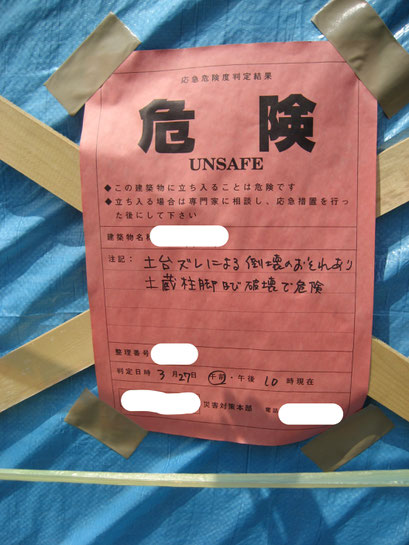 応急危険度判定結果
危険
UNSAFE
◆この建築物に立ち入ることは危険です
◆立ち入る場合は専門家に相談し、応急措置を行っ
た後にして下さい
建築物名称
注記: 土台ズレによる倒壊のおそれあり
土蔵柱脚ほぼ破壊で危険
整理番号
判定日時 3月27日 午前・午後 10時現在
災害対策本部 電話